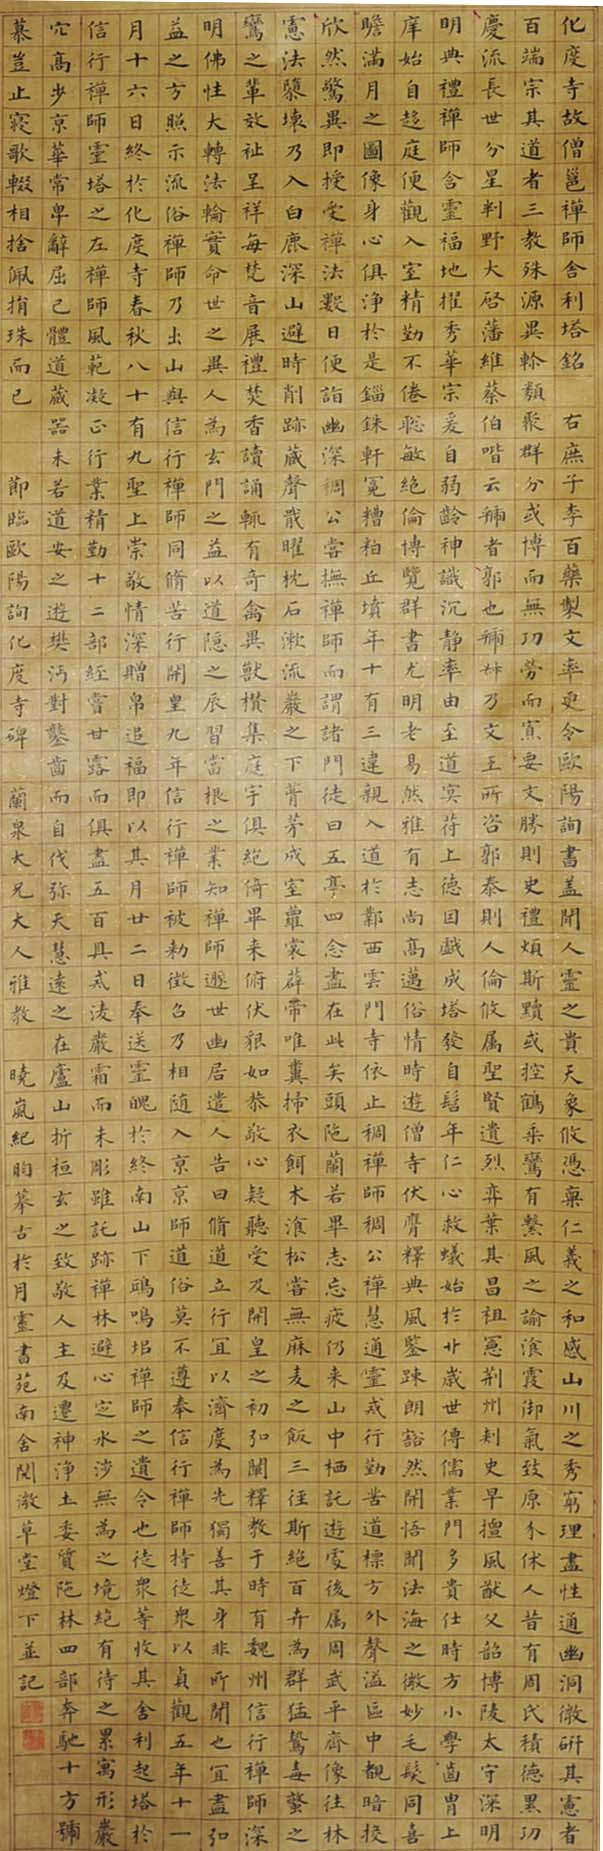 化度寺故僧邕禪師舍利塔銘　右庶子李百藥製文率更令歐陽詢書蓋聞人靈之貴天象攸憑稟仁義之和感山川之秀窮理盡性通幽洞微研其慮者
百端宗其道者三教殊源異軫類聚群分或博而無功勞而寡要文勝則史禮煩斯黷或控鶴乘鸞有繫風之諭飡霞御氣致原介休人昔有周氏積德累功
慶流長世分星判野大啓藩維蔡伯喈云虢者郭也虢姝乃文王所咨郭泰則人倫攸属聖賢遺烈弈葉其昌祖憲荊州刺史早擅風猷父韶博陵太守深明
明典禮禪師含靈福地擢秀華宗爰自弱齡神識沉静率由至道冥苻上德因戲成塔發自髫年仁心救蟻始於廿歲世傳儒業門多貴仕時方小學齒胄上
庠始自趍庭便觀入室精勤不倦聡敏絶倫博覽群書尤明老易然雅有志尚高邁俗情時遊僧寺伏膺釋典風鑒踈朗豁然開悟聞法海之微妙毛髮同喜
瞻滿月之圖像身心俱浄於是錙銖軒冕糟粕丘墳年十有三違親入道於鄴西雲門寺依止稠禪師稠公禪慧通靈戒行勤苦道標方外聲溢區中覩暗投
欣然驚異即授受禪法數日便詣幽深稠公嘗撫禪師而謂諸門徒曰五亭四念盡在此矣頭陁蘭若畢志忘疲仍来山中栖託遊處後属周武平齊像往林
憲法隳壊乃入白鹿深山避時削跡藏聲戢曜枕石漱流巖之下葺茅成室蘿裳薜帶唯糞掃衣餌术飡松嘗無麻麦之飯三徑斯絶百卉為群猛鷙毒螫之
鸞之輩效祉呈祥每梵音展禮焚香讀誦輒有奇禽異獸攢集庭宇俱絶倚畢来俯伏貌如恭敬心疑聽受及開皇之初弘闡釋教于時有魏州信行禪師深
明佛性大轉法輪實命世之異人為玄門之益以道隱之辰習當根之業知禪師遯世幽居遣人告曰脩道立行宜以濟度為先獨善其身非所聞也宜盡弘
益之方照示流俗禪師乃出山與信行禪師同脩苦行開皇九年信行禪師被勑徵召乃相随入京京師道俗莫不遵奉信行禪師持徒衆以貞觀五年十一
月十六日終於化度寺春秋八十有九聖上崇敬情深贈帛追福即以其月廿二日奉送靈魄於終南山下鴟鳴堆禪師之遺令也徒衆等收其舍利起塔於
信行禪師靈塔之左禪師風範凝正行業精勤十二部經嘗甘露而俱盡五百具戒淩嚴霜而未彫雖託跡禪林避心定水涉無為之境絶有待之累寓形巖
穴高步京華常卑辭屈己體道藏器未若道安之遊樊沔對鑿齒而自伐弥天慧遠之在廬山折桓玄之致敬人主及遷神浄土委質陁林四部奔馳十方號
慕豈止寝歌輟相捨佩捐珠而已　節臨歐陽詢化度寺碑　蘭泉大兄大人雅教　曉嵐紀昀摹古於月靈書苑南舍閱微草堂燈下並記